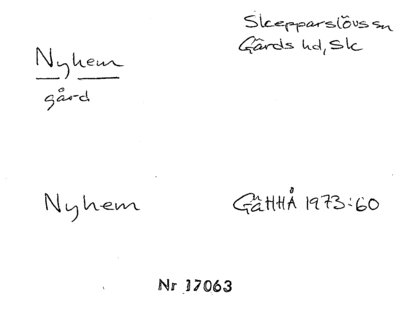 Skepparslövs sn
Gärds hd, Sk
Nyhem
gård
Nyhem
GäHHÅ 1973:60
Nr 17063